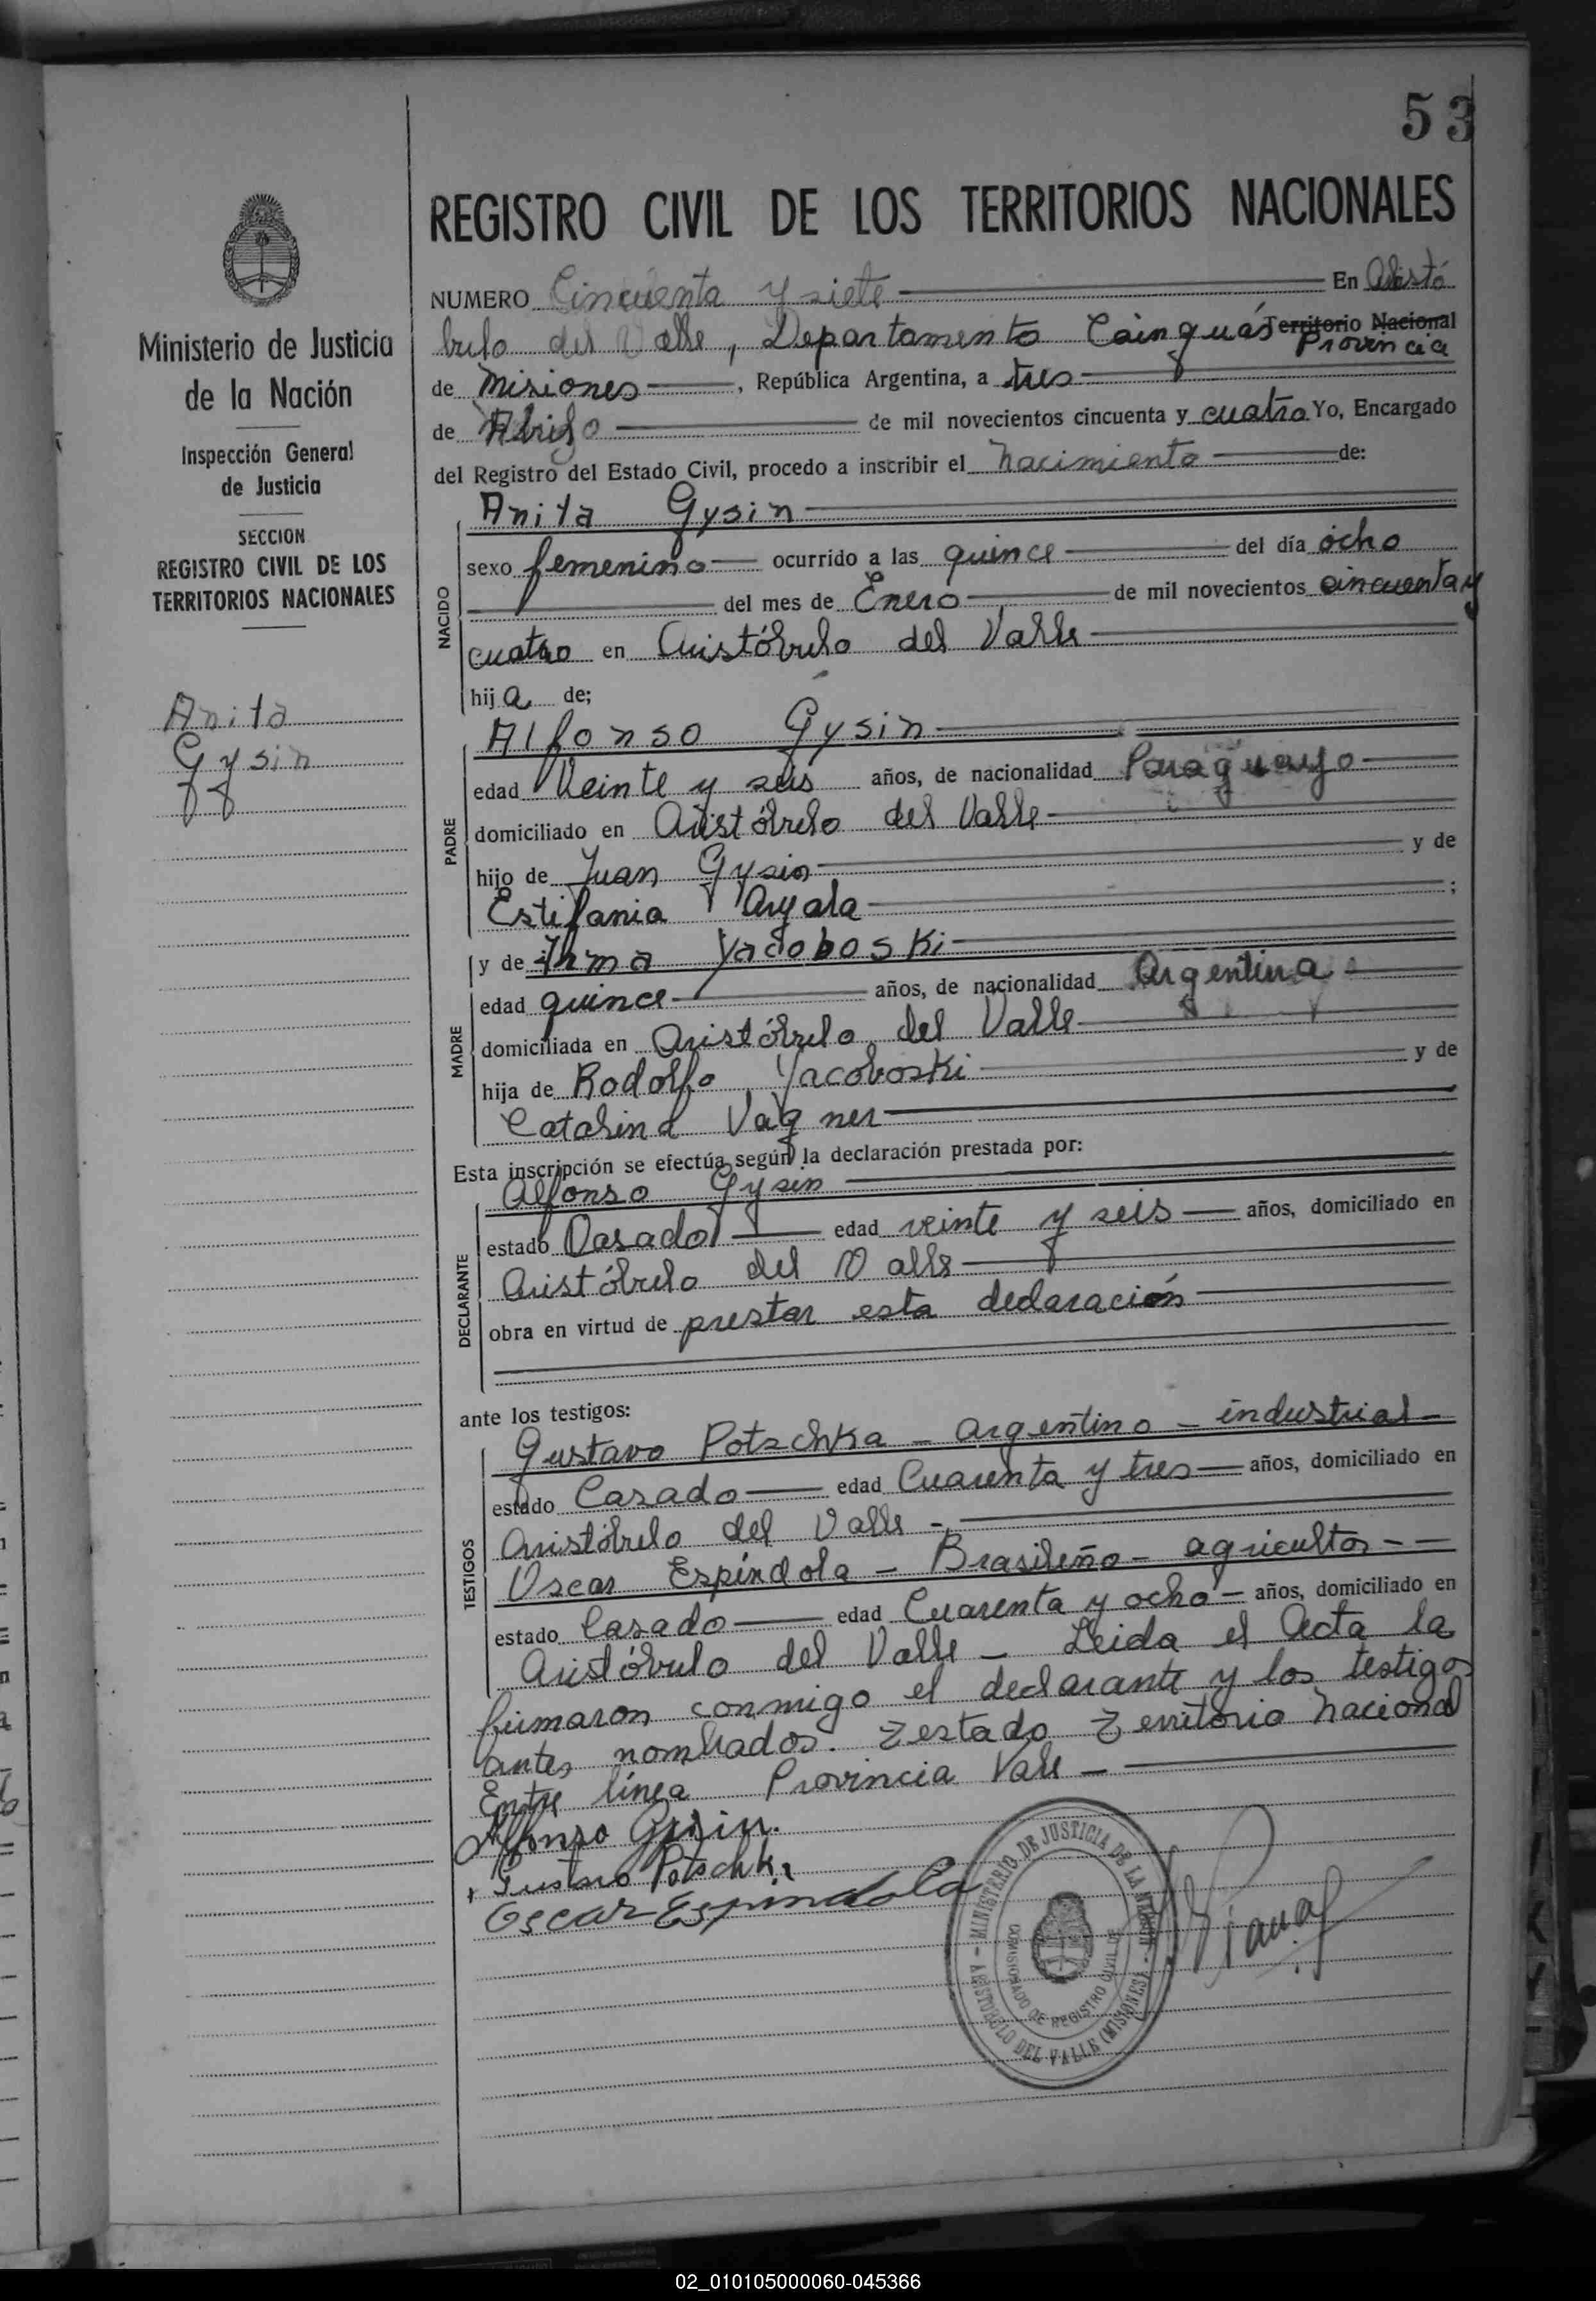 53
REGISTRO CIVIL DE LOS TERRITORIOS NACIONALES
Ministerio de Justicia
de la Nación
Inspección General
de Justicia
SECCION
REGISTRO CIVIL DE LOS
TERRITORIOS NACIONALES
Anita
Gysin
NUMERO Cincuenta y siete En Aristó
bulo del Valle, Departamento Cainguás Territorio Nacional
Provincia
de Misiones, República Argentina, a tres
de Abril de mil novecientos cincuenta y cuatro Yo, Encargado
del Registro del Estado Civil, procedo a inscribir el nacimiento de:
NACIDO
Anita Gysin
sexo femenino ocurrido a las quince del día ocho
del mes de Enero de mil novecientos cincuenta y
cuatro en Aristóbulo del Valle
hija de;
PADRE
Alfonso Gysin
edad Veinte y seis años, de nacionalidad Paraguayo
domiciliado en Aristóbulo del Valle
hijo de Juan Gysin y de
Estifania Ayala ;
MADRE
y de Irma Yacoboski
edad quince años, de nacionalidad Argentina
domiciliada en Aristóbulo del Valle
hija de Rodolfo Yacoboski y de
Catalina Vagner
Esta inscripción se efectúa según la declaración prestada por:
DECLARANTE
Alfonso Gysin
estado Casado edad veinte y seis años, domiciliado en
Aristóbulo del Valle
obra en virtud de prestar esta declaración
ante los testigos:
TESTIGOS
Gustavo Potzchka - argentino - industrial -
estado Casado edad Cuarenta y tres años, domiciliado en
Aristóbulo del Valle -
Oscar Espíndola - Brasileño - agricultor - -
estado Casado edad Cuarenta y ocho años, domiciliado en
Aristóbulo del Valle - Leida el Acta la
firmaron conmigo el declarante y los testigos
antes nombrados. Testado Territorio Nacional
Entre línea Provincia Vale -
Alfonso Gysin.
Gustavo Potschka
Oscar Espindola
MINISTERIO DE JUSTICIA DE LA NACION
COMISIONADO DE REGISTRO CIVIL DE
ARISTOBULO DEL VALLE (MISIONES)
02_010105000060-045366